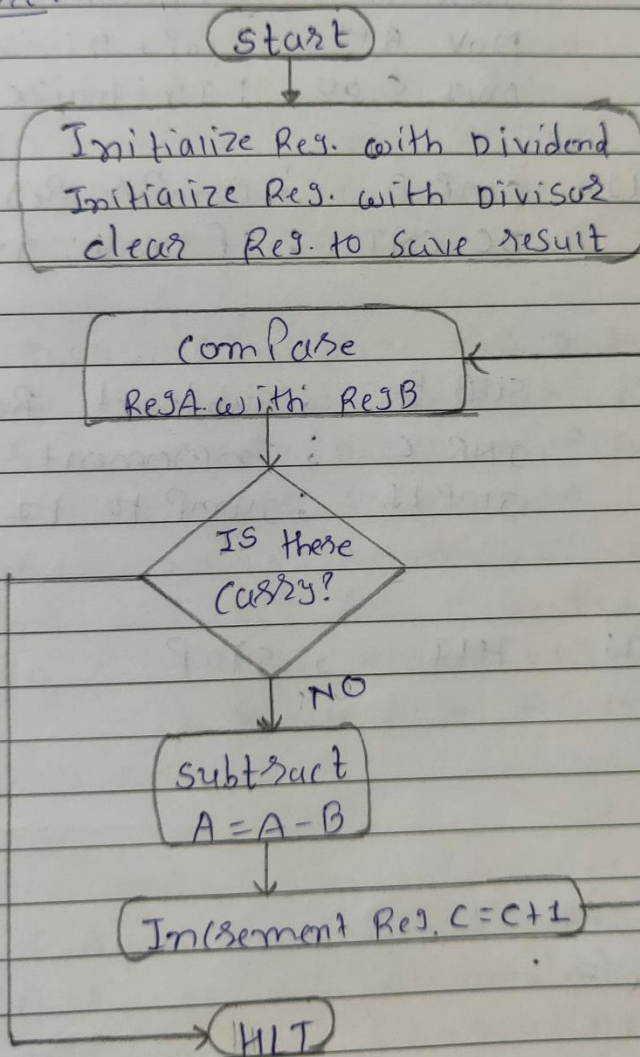 Start
Initialize Reg. with Dividend
Initialize Reg. with Divisor
clear Reg. to save result
Compare
RegA. with RegB
IS there
Carry?
NO
Subtract
A = A - B
Increment Reg. C = C + 1
HLT